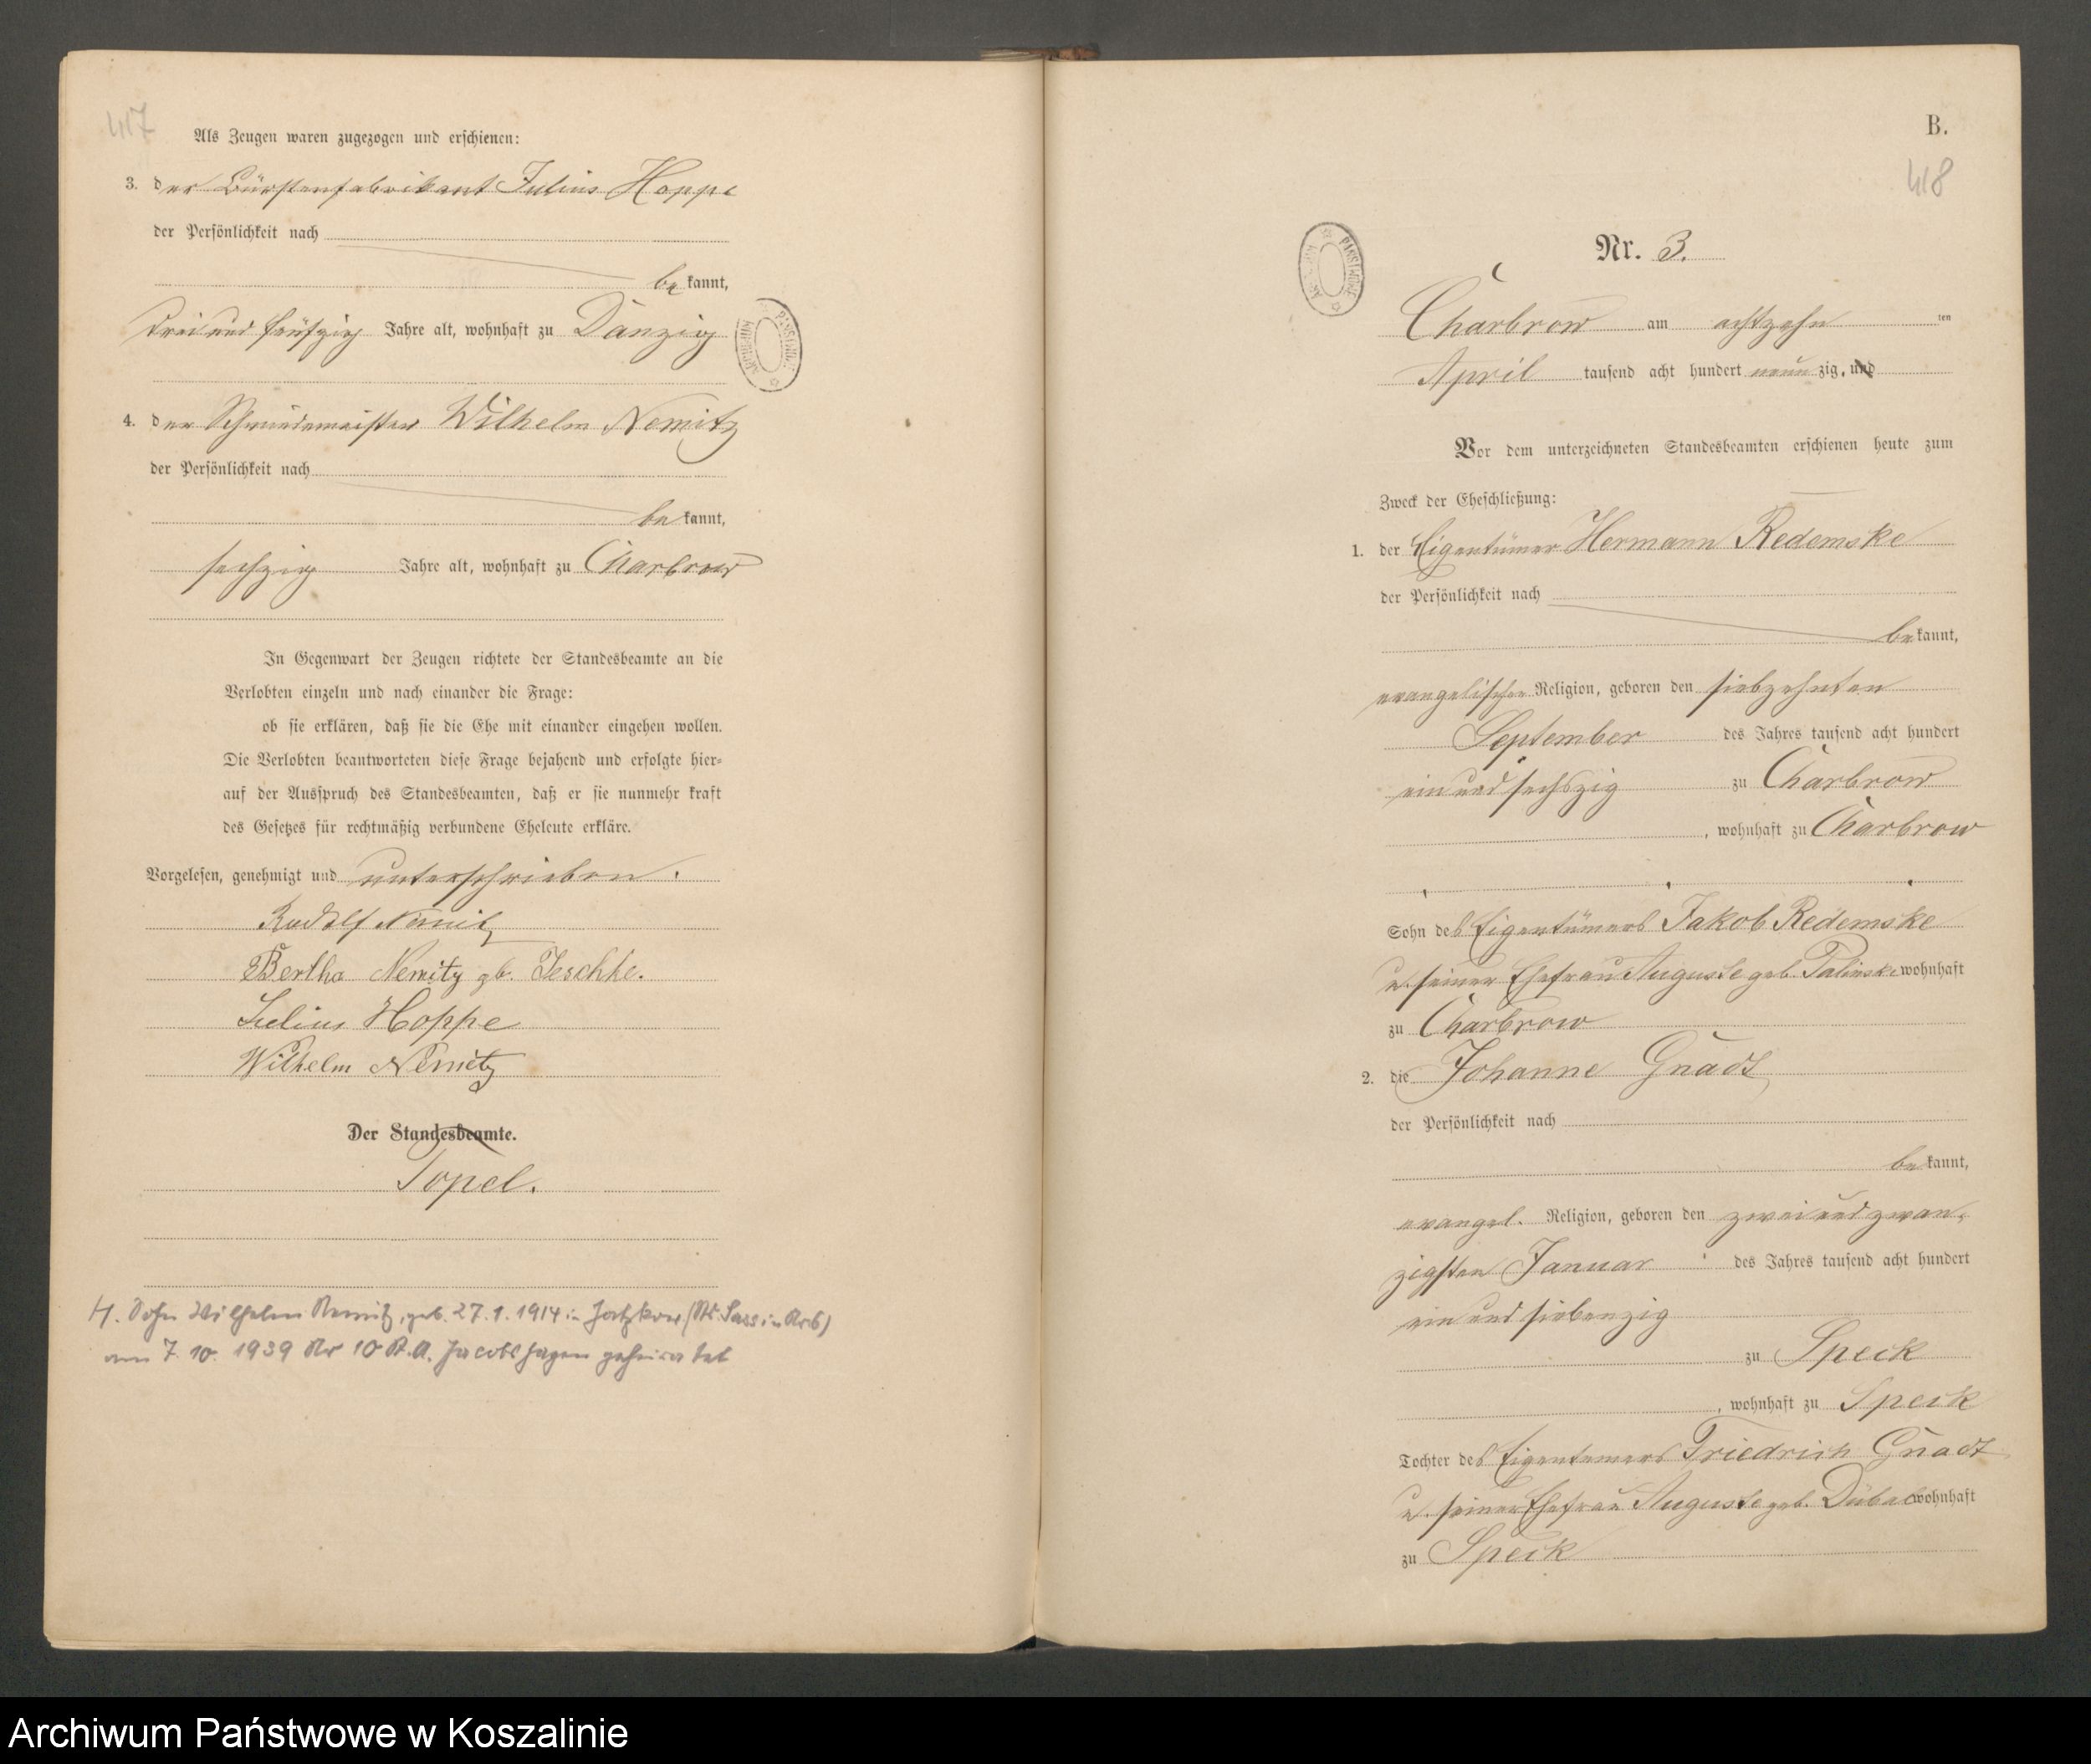 417
Als Zeugen waren zugezogen und erschienen:
3. der Bürstenfabrikant Julius Hoppe
der Persönlichkeit nach
bekannt,
drei und fünfzig Jahre alt, wohnhaft zu Danzig
ARCHIWUM PAŃSTWOWE
4. der Schmiedemeister Wilhelm Nemitz
der Persönlichkeit nach
bekannt,
sechzig Jahre alt, wohnhaft zu Charbrow
In Gegenwart der Zeugen richtete der Standesbeamte an die
Verlobten einzeln und nach einander die Frage:
ob sie erklären, daß sie die Ehe mit einander eingehen wollen.
Die Verlobten beantworteten diese Frage bejahend und erfolgte hier-
auf der Ausspruch des Standesbeamten, daß er sie nunmehr kraft
des Gesetzes für rechtmäßig verbundene Eheleute erkläre.
Vorgelesen, genehmigt und unterschrieben.
Rudolf Nemitz
Bertha Nemitz gb. Jeschke.
Julius Hoppe
Wilhelm Nemitz
Der Standesbeamte.
Topel.
H. Sohn Wilhelm Nemitz, geb. 27.1.1914 in
am 7.10.1939 Nr 10 St.A. Jacobshagen geheiratet
B.
418
ARCHIWUM PAŃSTWOWE
Nr. 3.
Charbrow am achtzehn ten
April tausend acht hundert neunzig, und
Vor dem unterzeichneten Standesbeamten erschienen heute zum
Zweck der Eheschließung:
1. der Eigentümer Hermann Redemske
der Persönlichkeit nach
bekannt,
evangelischer Religion, geboren den siebzehnten
September des Jahres tausend acht hundert
ein und sechszig zu Charbrow
, wohnhaft zu Charbrow
Sohn des Eigentümers Jakob Redemske
u. seiner Ehefrau Auguste geb. Palinske wohnhaft
zu Charbrow
2. die Johanne Gnadt
der Persönlichkeit nach
bekannt,
evangel. Religion, geboren den zwei und zwan-
zigsten Januar des Jahres tausend acht hundert
ein und siebenzig
zu Speck
, wohnhaft zu Speck
Tochter des Eigentümers Friedrich Gnadt
u. seiner Ehefrau Auguste geb. Dübal wohnhaft
zu Speck
Archiwum Państwowe w Koszalinie